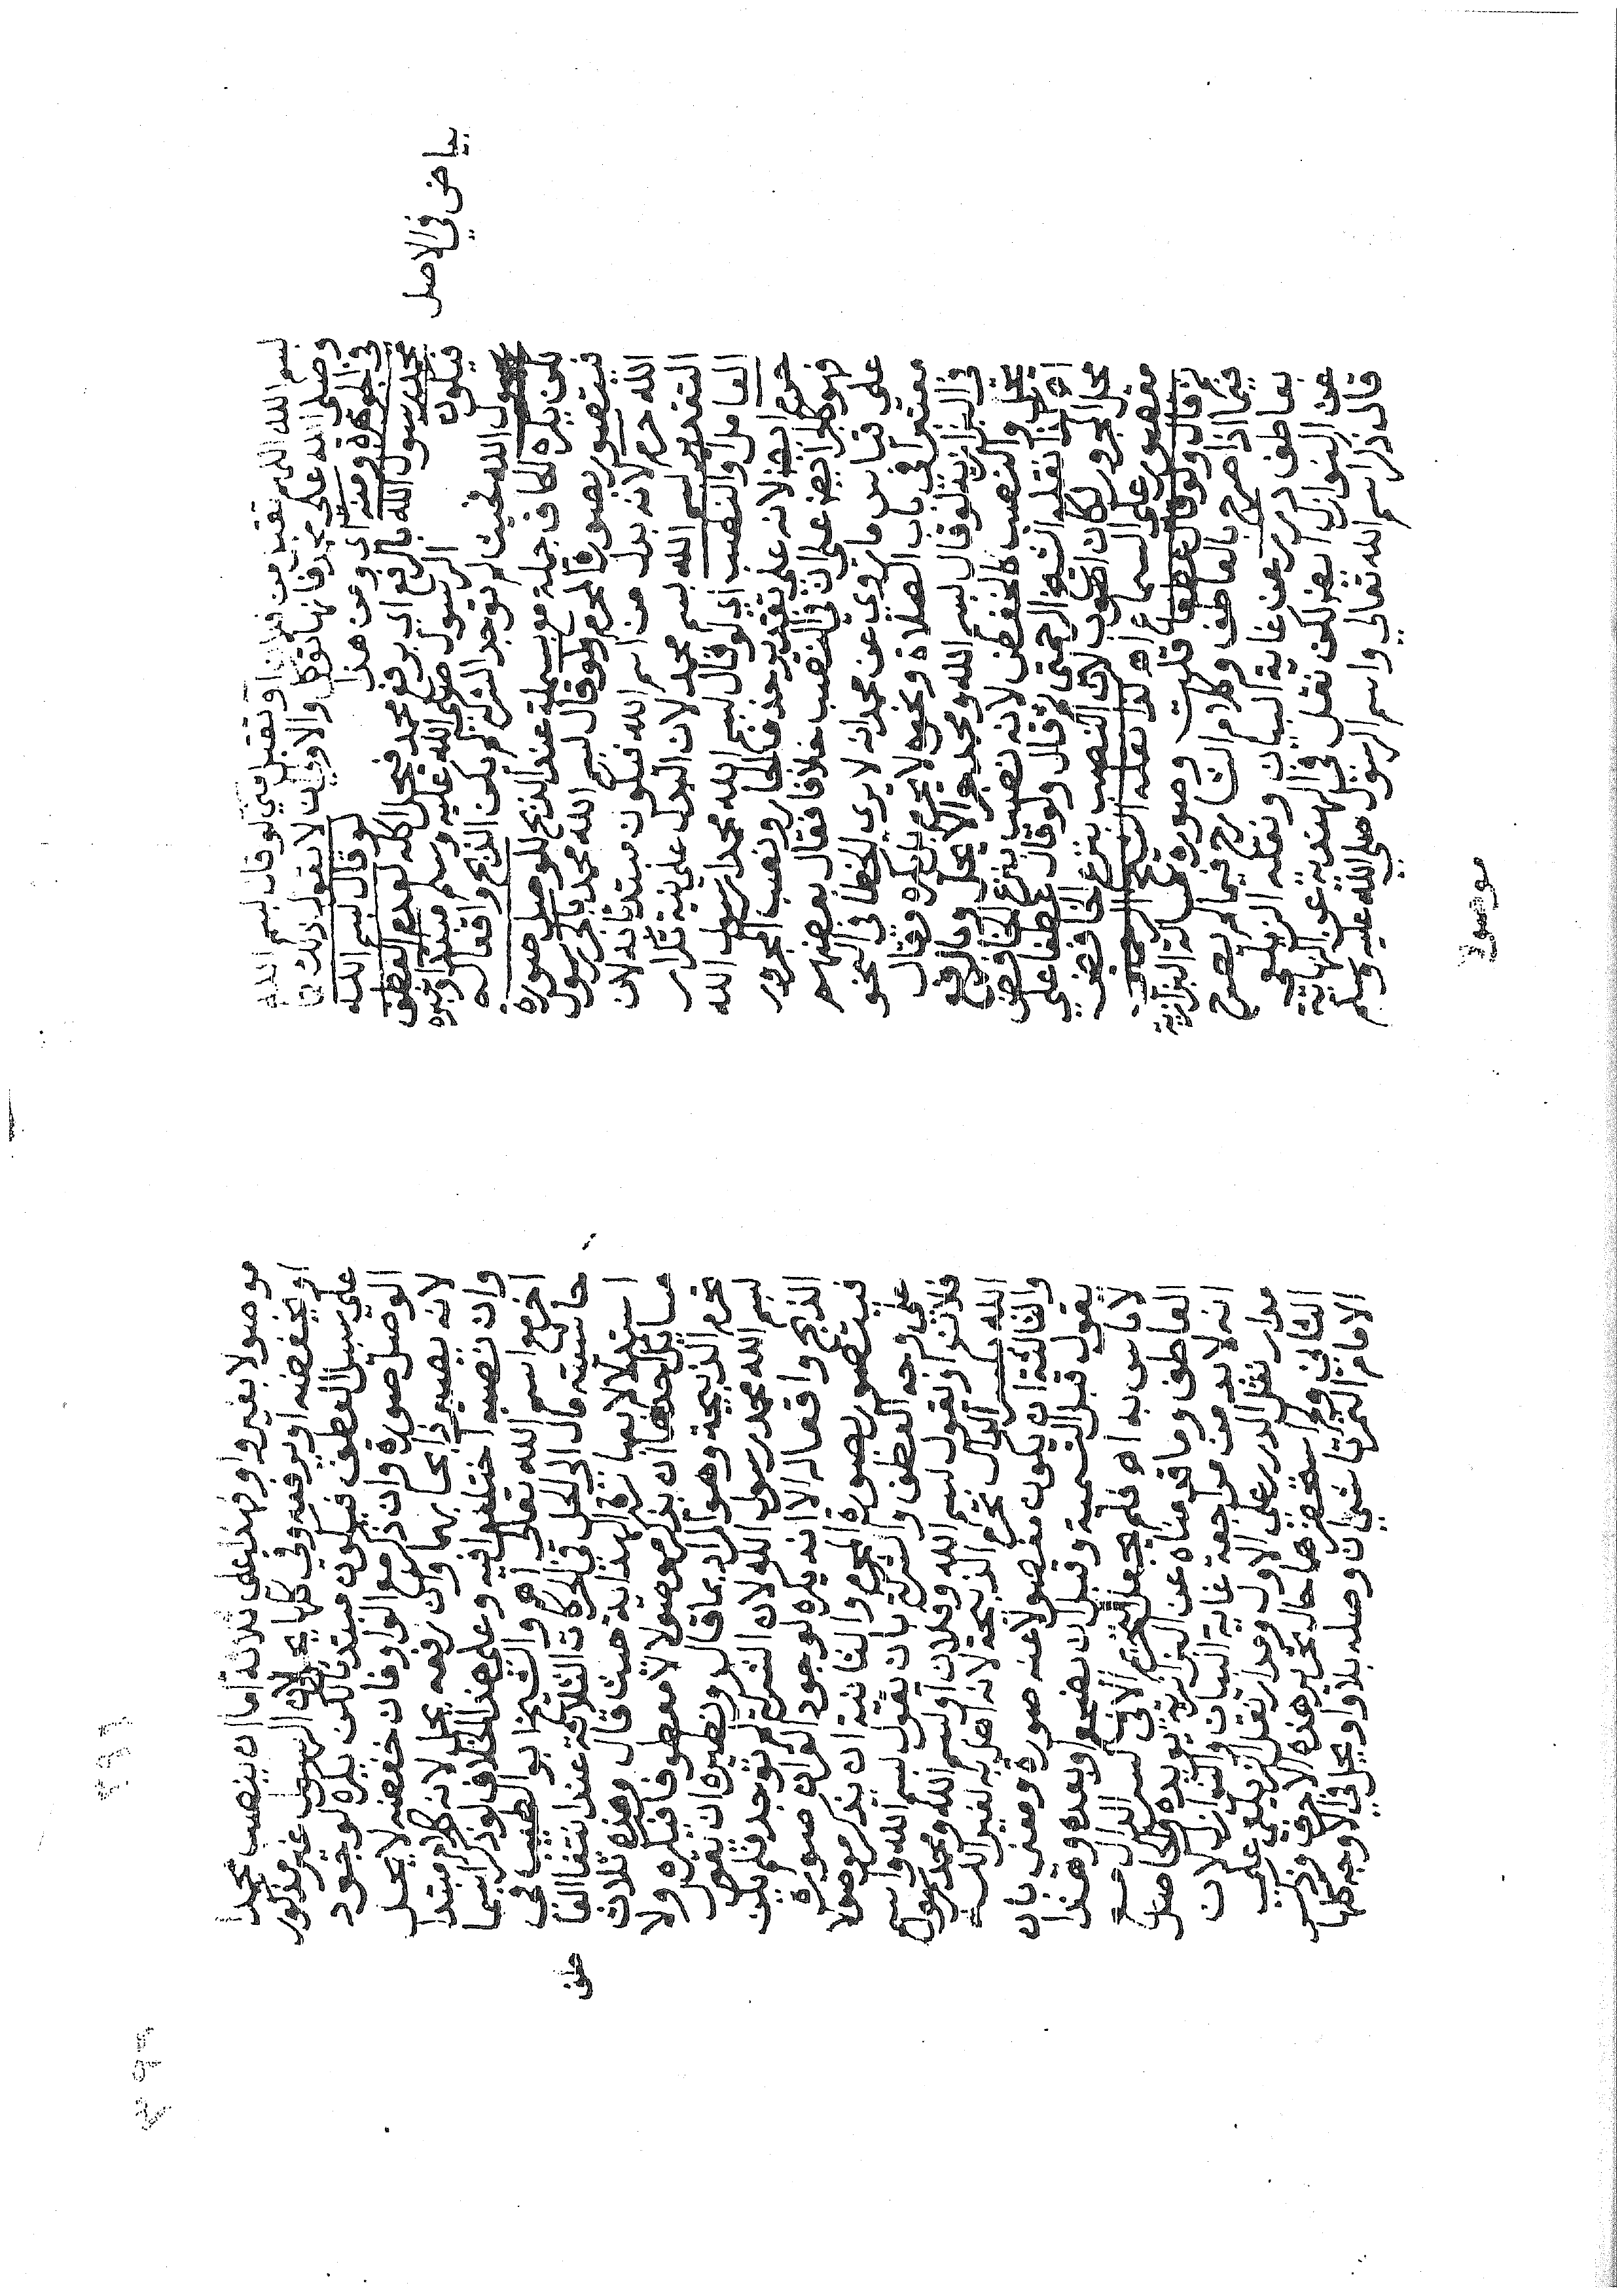 بسم الله اللهم تقبل من فلان او تقبل مني لو قال بسم الله
وصلى الله على محمد فانها تؤكل والاولى ان لا يقول ذلك
في الجوهرة ومنه اي ومن هذا لو قال بسم الله
محمد رسول الله بالرفع اي برفع محمد فيحل اكله لعدم العطف
فيكون الرسول صلى الله عليه وسلم مبتدا وخبره
رسول الله فحيث لم توجد الشركة لم يكن الذبح واقعا له
لكن يكره لكافي جملة مع بسملة عند الذبح للوصل صورة
فيتصور بصورة المحرم ولو قال بسم الله محمد بالجر رسول
الله حرم لانه بدل من اسم الله فيكون مبتدئا به لان
التقدير بسم الله بسم محمد لان البدل على نية تكرار
العامل والنصب اي لو قال بسم الله محمدا رسول الله
حرم ايضا لانه على تقدير حذف الجار ونصب المجرور
فهو كالجر ايضا على ان في النصب خلافا فقال بعضهم
على قياس ما روي عن محمد انه لا يرى الخطأ في النحو
معتبرا في باب الصلاة ونحوها لا يحرم بل يكره وقال
في البزازية لو قال بسم الله ومحمد بجر لا يحل وبالرفع
يحل والنصب كالخفض لانه نصب بنزع الخافض
اه كذا نقله الشيخ الرحمتي ثم قال ولو قال عطفا على
محل المجرور لكان اصوب لان النصب بنزع الخافض
مقصور على السماع اه
ثم قال ولو قال عطفا قلت وصورة مسالة البزازية
فيما اذا صرح بالعاطف وكلام الشارح فيما لم يصرح
بعاطف ذكره عن غاية البيان ونقله الزيلعي
عن النوازل ايضا لكن نقل في الهندية عن النهاية
قال ذكر اسم الله تعالى واسم الرسول صلى الله عليه وسلم
موصولا
بياض في الاصل
موصولا بغير واو فهذا على ثلاثة اما ان ينصب محمدا
او يخفضه او يرفعه وفي كلها يحل لان الرسول غير مذكور
على سبيل العطف فيكون مبتدئا لكن يكره لوجود
الوصل صورة وان ذكر مع الواو فان خفضه لا يحل
لانه يصير ذابحا بهما وان رفعه يحل لانه كلام مبتدا
وان نصبه اختلفوا فيه وعلى هذا الخلاف لو ذكر اسما
اخر مع اسم الله تعالى اه والشيخ ابو الطيب في
حاشيته مال الى الحل في الحركات الثلاثة عند انتفا العا
طف
استدلالا بعبارة الهداية حيث قال وهذه ثلاث
مسايل احدها ان يذكر موصولا لا معطوفا فيكره ولا
تحرم الذبيحة وهو المراد بما قال ونظيره ان يقول
بسم الله محمد رسول الله لان الشركة لم توجد فلم يكن
الذبح واقعا له الا انه يكره لوجود القران صورة
فيتصور بصورة المحرم والثانية ان يذكر موصولا
على وجه العطف والشركة بان يقول بسم الله واسم
فلان او يقول بسم الله وفلان او بسم الله ومحمد رسول
الله بكسر الدال تحرم الذبيحة لانه اهل به لغير الله
والثالثة ان يكون مفصولا عنه صورة ومعنى بان
يقول قبل التسمية وقبل ان يضجع او بعده وهذا
لا باس به اه فلم يجعل التحريم الا في كسر الدال مع
العاطف وما قدمناه عن البزازية يؤيده والحاصل
انه لا بد من مراجعة غاية البيان والنوازل لان
مدار نقل الدرر على الاول ومدار نقل الزيلعي على
الثاني ولم استحضرها حال تحرير هذه الاحرف وذكر
الامام التمرتاشي ان وصله بلا واو يحل في الاوجه كلها